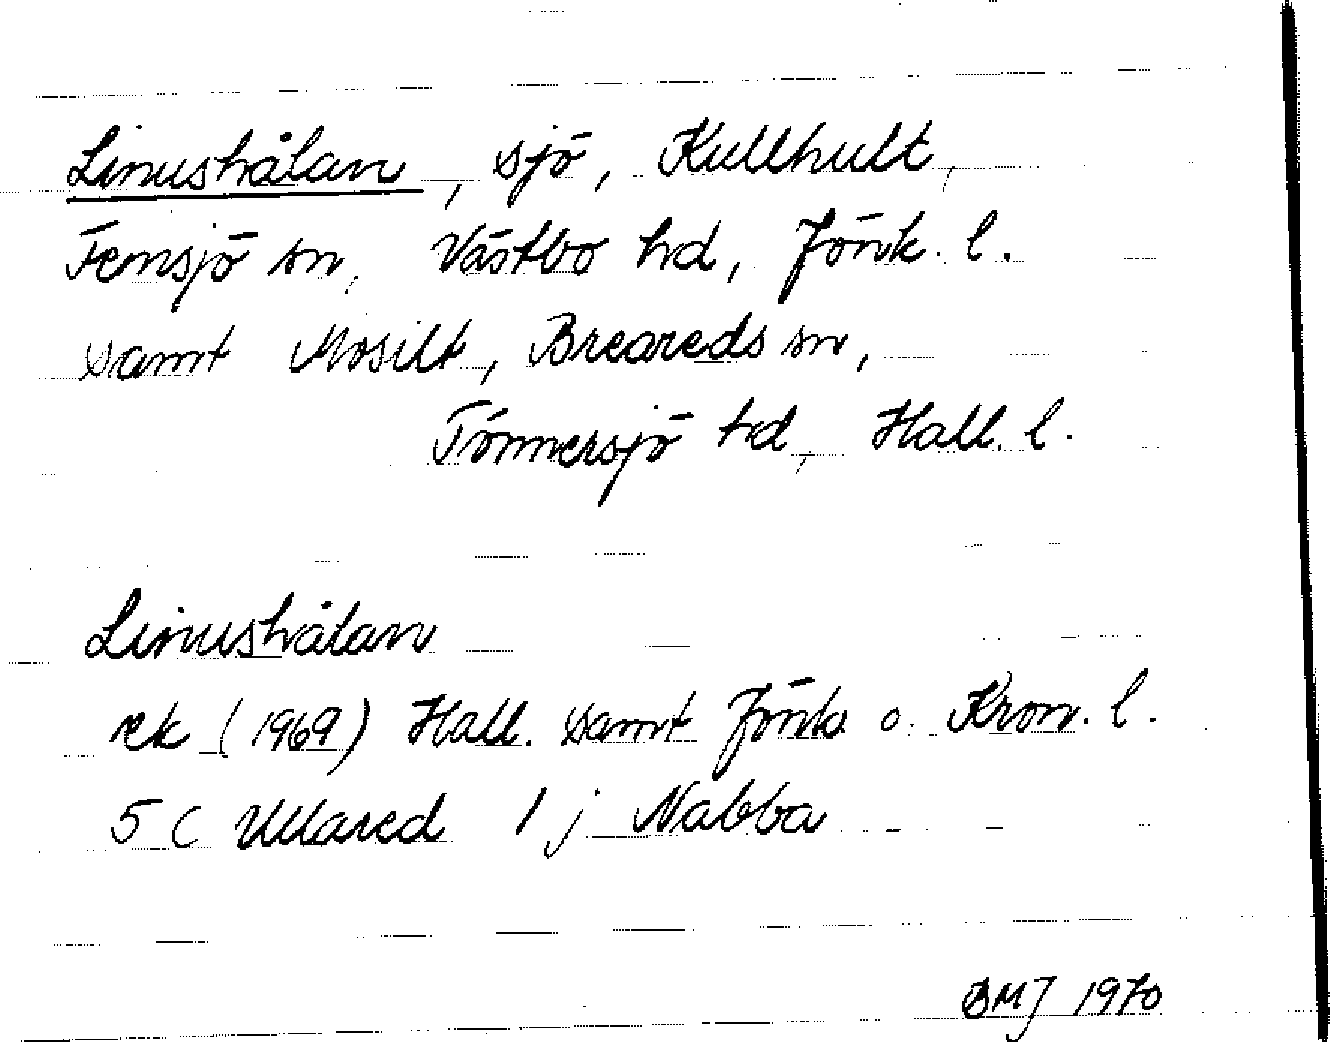 Linushålan, sjö, Kullhult,
Femsjö sn, Västbo hd, Jönk. l.
samt Mosilt, Breareds sn,
Tönnersjö hd, Hall. l.
Linushålan
rek (1969) Hall. samt Jönk. o. Kron. l.
5 C Ullared 1 j Nabba
BMJ 1970